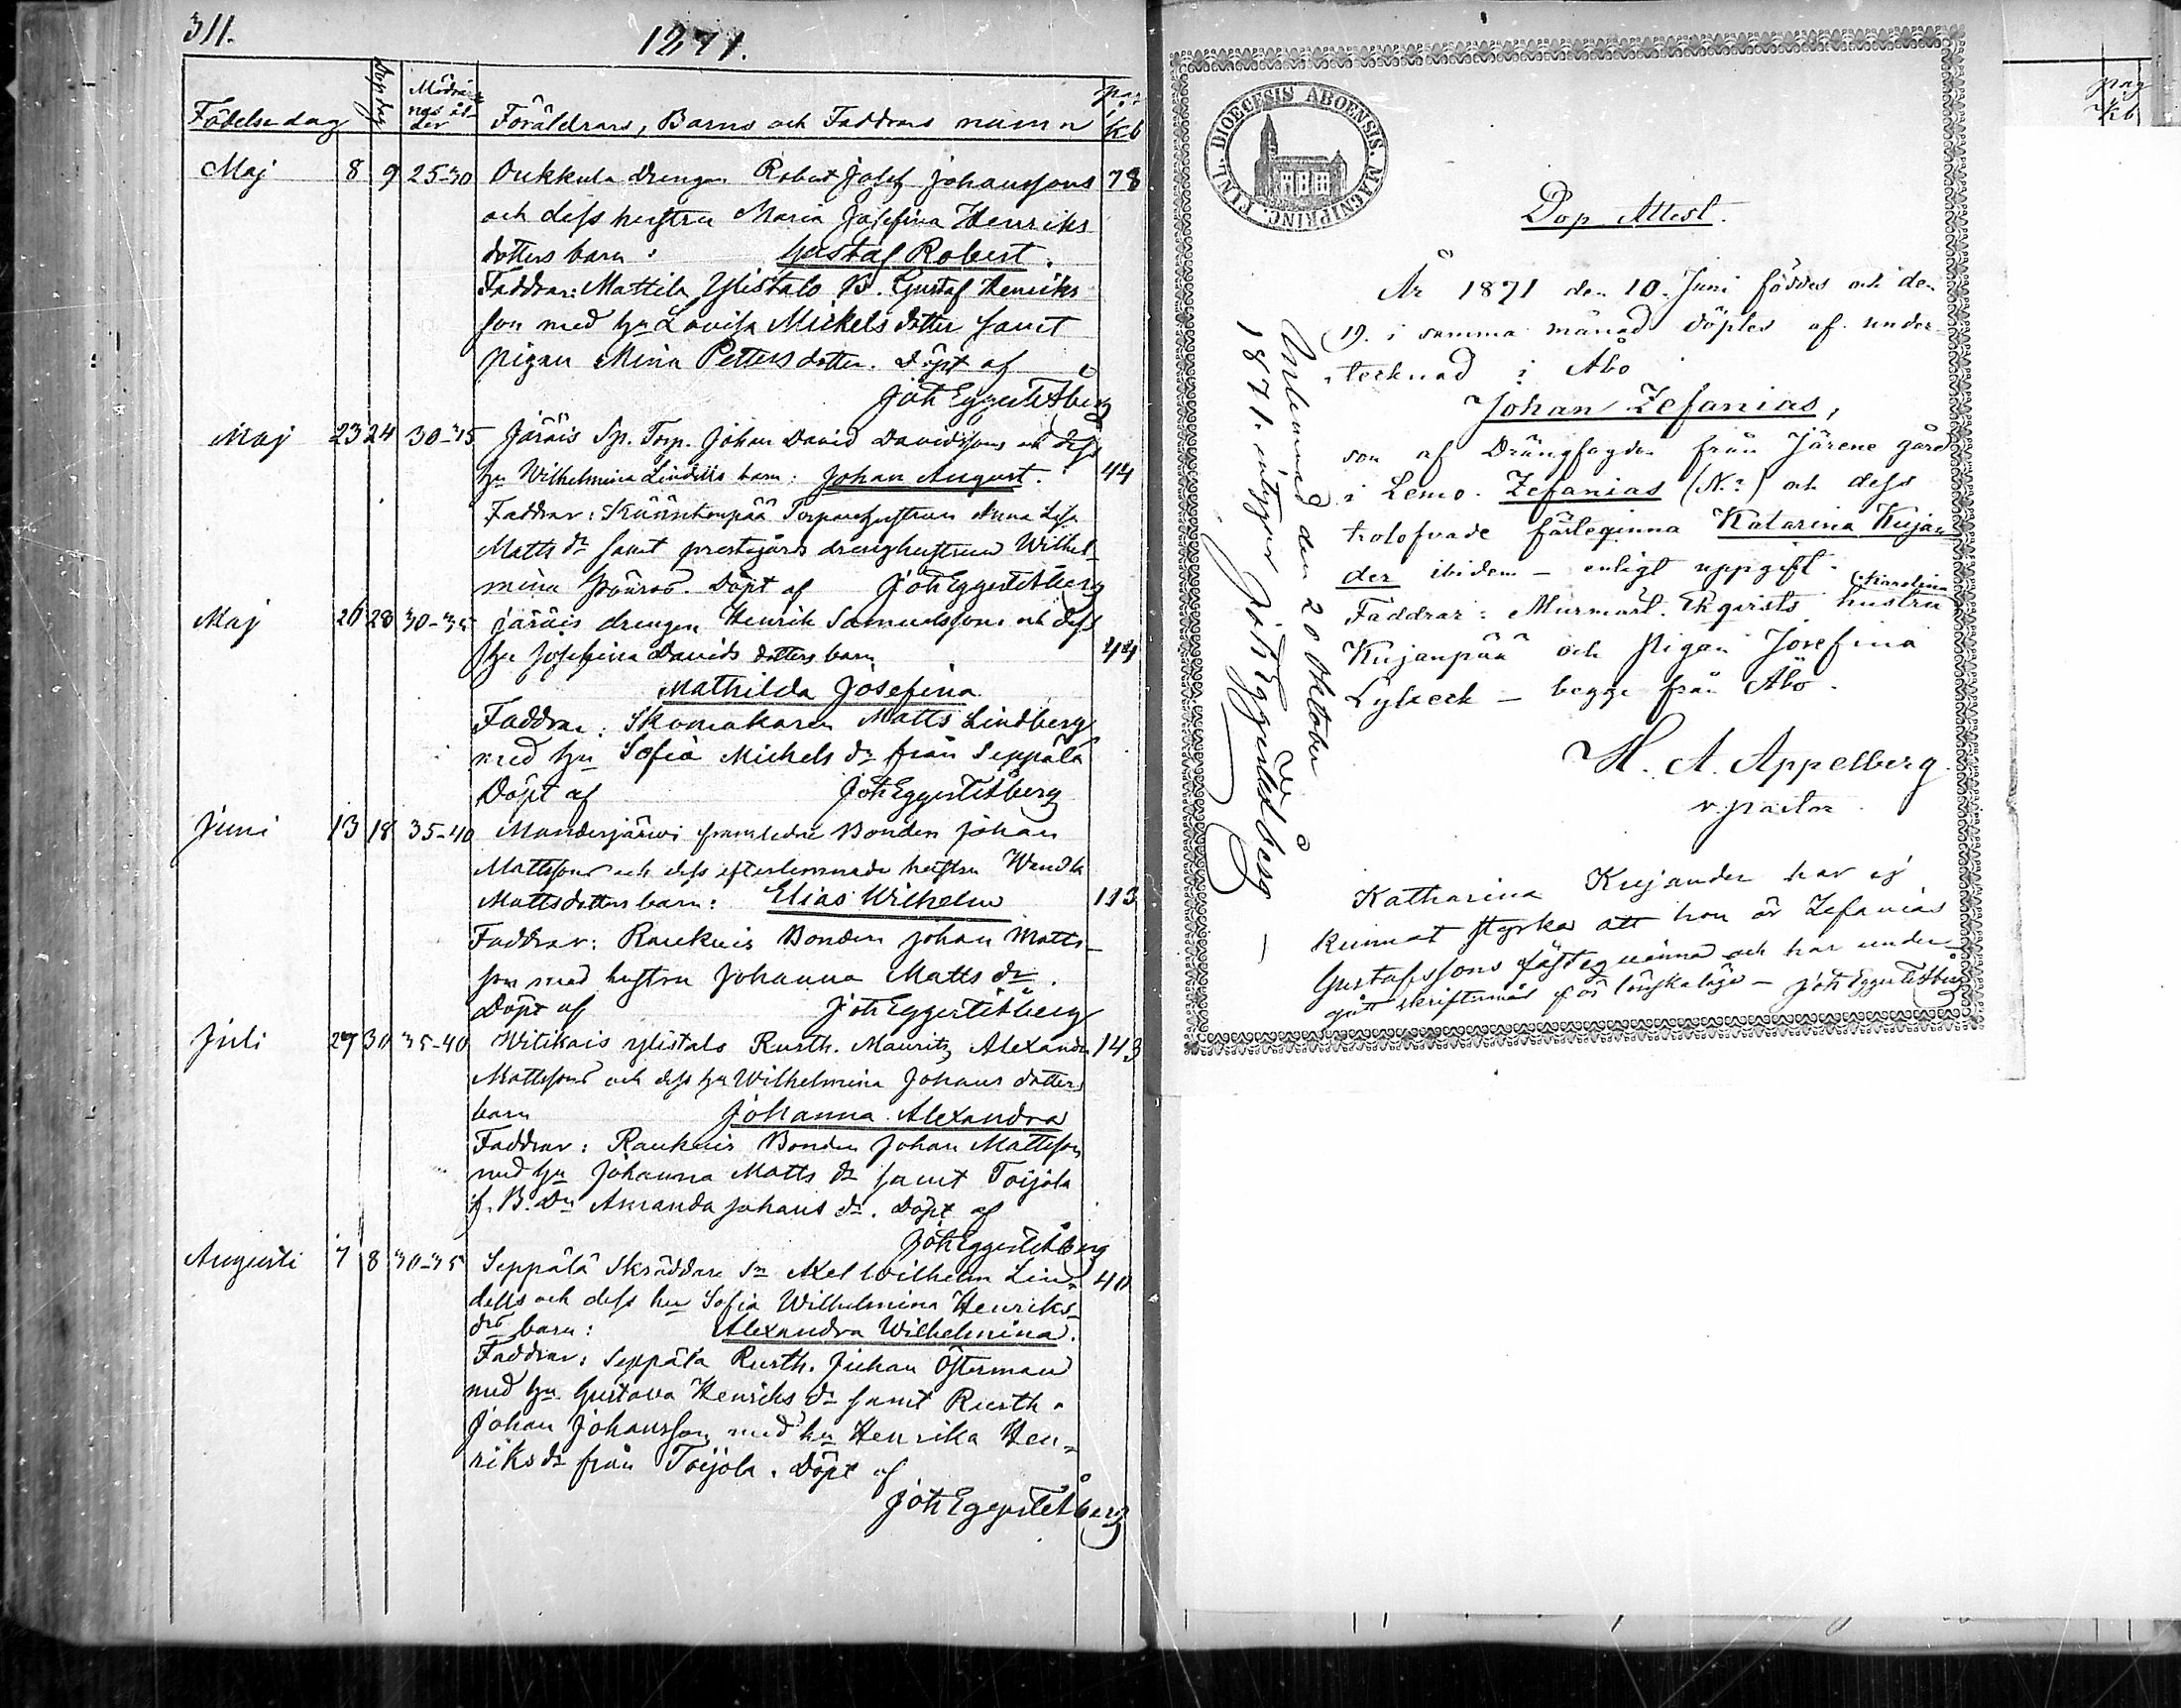 311.
1871.
Födelsedag
Dop dag
Mödrar-
nas ål-
der
Föräldrars, Barns och Faddrars namn
pag
i
Kb
Maj 8 9 25-30 Oukkula Drengen Robert Josef Johanssons 78
och dess hustru Maria Josefina Henriks
dotters barn: Gustaf Robert.
Faddrar: Mattila Ylistalo B. Gustaf Henriks
son med hu Lovisa Mickels dotter samt
pigan Mina Petters dotter. Döpt af
Joh Eggert Åberg
Maj 23 24 30-35 Järäis Sp. Torp. Johan David Davidssons och dess
hu Wilhelmina Lindells barn: Johan August. 44
Faddrar: Torparehustrun Anna Lisa
Matts dr samt prestgårds drenghustrun Wilhel-
mina. Döpt af Joh Eggert Åberg
Maj 26 28 30-35 Järäis drengen Henrik Samuelssons och dess
hu Josefina Davids dotters barn 44
Mathilda Josefina
Faddrar: Skomakaren Matts Lindberg
med hu Sofia Michels dr från Seppälä
Döpt af Joh Eggert Åberg
Juni 13 18 35-40 Munderjärwi framledne Bonden Johan
Mattssons och dess efterlemnade hustru Wendla
Mattsdotters barn: Elias Wilhelm 113
Faddrar: Raukuis Bonden Johan Matts-
son med hustru Johanna Matts dr.
Döpt af Joh Eggert Åberg
Juli 29 30 35-40 Witikais ylistalo Rusth. Mauritz Alexander 143
Mattssons och dess hu Wilhelmina Johans dotters
barn Johanna Alexandra
Faddrar: Raukuis Bonden Johan Mattsson
med hu Johanna Matts dr samt Toijola
f. B. Dn Amanda Johans dr. Döpt af
Joh Eggert Åberg
Augusti 7 8 30-35 Seppälä Skräddare Sn Axel Wilhelm Lin- 40
dells och dess hu Sofia Wilhelmina Henriks-
drs barn: Alexandra Wilhelmina.
Faddrar: Seppälä Rusth. Johan Österman
med hu Gustava Henriks dr samt Rusth.
Johan Johansson med hu Henrika Hen-
riksdr från Toijola. Döpt af
Joh Eggert Åberg
DIOECESIS ABOENSIS. MAGNI PRINC. FINL.
Dop Attest.
År 1871 den 10. Juni föddes och den
19. i samma månad döptes af under-
tecknad i Åbo
Johan Zefanias,
son af Drängfogden från Järene gård
i Lemo. Zefanias (N.?) och dess
trolofvade fästeqvinna Katarina Kujan-
der ibidem - enligt uppgift.
Faddrar: Murmäst. Ekqvists hustru Karolina
Kujanpää och Pigan Josefina
Lybeck - begge från Åbo.
H. A. Appelberg
v. pastor
Anlemnad den 20 Oktober
1871. intygar Joh Eggert Åberg
Katharina Kujander har ej
kunnat styrka att hon är Zefanias
Gustafssons fästeqvinna och har under-
gått skriftermål för lönskaläge - Joh Eggert Åberg
pag
Kb